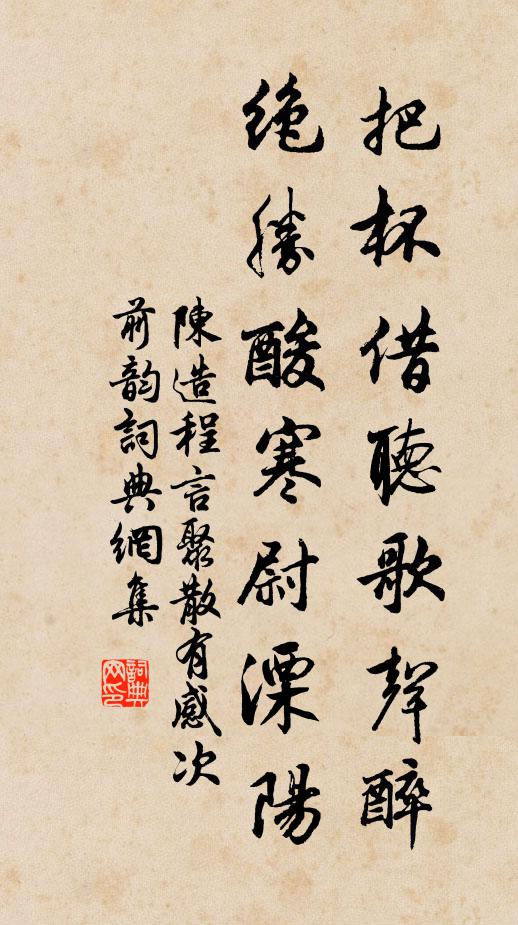 把杯借聽歌聲醉
絶勝酸寒尉溧陽
陳造程言聚散有感次
前韵詞典網集
詞典
网印